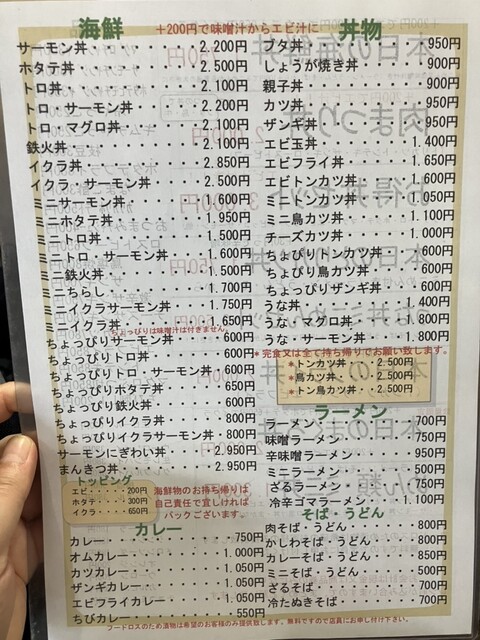 海鮮
+200円で味噌汁からエビ汁に
サーモン丼・・・・・・・2.200円
ホタテ丼・・・・・・・・2.500円
トロ丼・・・・・・・・・2.100円
トロ・サーモン丼・・・・2.200円
トロ・マグロ丼・・・・・2.100円
鉄火丼・・・・・・・・・2.100円
イクラ丼・・・・・・・・2.850円
イクラ・サーモン丼・・・2.500円
ミニサーモン丼・・・・・1.600円
ミニホタテ丼・・・・・・1.950円
ミニトロ丼・・・・・・・1.500円
ミニトロ・サーモン丼・・1.600円
ミニ鉄火丼・・・・・・・1.500円
ミニちらし・・・・・・・1.700円
ミニイクラサーモン丼・・1.750円
ミニイクラ丼・・・・・・1.650円
ちょっぴりは味噌汁が付きません
ちょっぴりサーモン丼・・・600円
ちょっぴりトロ丼・・・・・600円
ちょっぴりトロ・サーモン丼・・600円
ちょっぴりホタテ丼・・・・650円
ちょっぴり鉄火丼・・・・・600円
ちょっぴりイクラ丼・・・・800円
ちょっぴりイクラサーモン丼・・800円
サーモンにぎわい丼・・・2.950円
まんきつ丼・・・・・・・2.950円
トッピング
エビ・・・・・200円
ホタテ・・・・300円
イクラ・・・・650円
海鮮物のお持ち帰りは
自己責任で宜しければ
パックございます。
カレー
カレー・・・・・・・・・750円
オムカレー・・・・・・1.000円
カツカレー・・・・・・1.050円
ザンギカレー・・・・・1.050円
エビフライカレー・・・1.050円
ちびカレー・・・・・・・550円
丼物
ブタ丼・・・・・・・・・950円
しょうが焼き丼・・・・・900円
親子丼・・・・・・・・・900円
カツ丼・・・・・・・・・950円
ザンギ丼・・・・・・・・950円
エビ玉丼・・・・・・・1.400円
エビフライ丼・・・・・1.650円
エビトンカツ丼・・・・1.600円
ミニトンカツ丼・・・・1.050円
ミニ鳥カツ丼・・・・・1.100円
チーズカツ丼・・・・・1.000円
ちょぴりトンカツ丼・・・600円
ちょぴり鳥カツ丼・・・・600円
ちょっぴりザンギ丼・・・600円
うな丼・・・・・・・・1.400円
うな・マグロ丼・・・・1.800円
うな・サーモン丼・・・1.800円
*完食又は全て持ち帰りでお願い致します。
*トンカツ丼・・・2.500円
*鳥カツ丼・・・・2.500円
*トン鳥カツ丼・・2.500円
ラーメン
ラーメン・・・・・・・・700円
味噌ラーメン・・・・・・750円
辛味噌ラーメン・・・・・950円
ミニラーメン・・・・・・500円
ざるラーメン・・・・・・750円
冷辛ゴマラーメン・・・1.100円
そば・うどん
肉そば・うどん・・・・・800円
かしわそば・うどん・・・800円
カレーそば・うどん・・・850円
ミニそば・うどん・・・・500円
ざるそば・・・・・・・・700円
冷たぬきそば・・・・・・700円
フードロスのため漬物は希望のお客様のみ提供致します。無料ですので店員にお申し付け下さい。